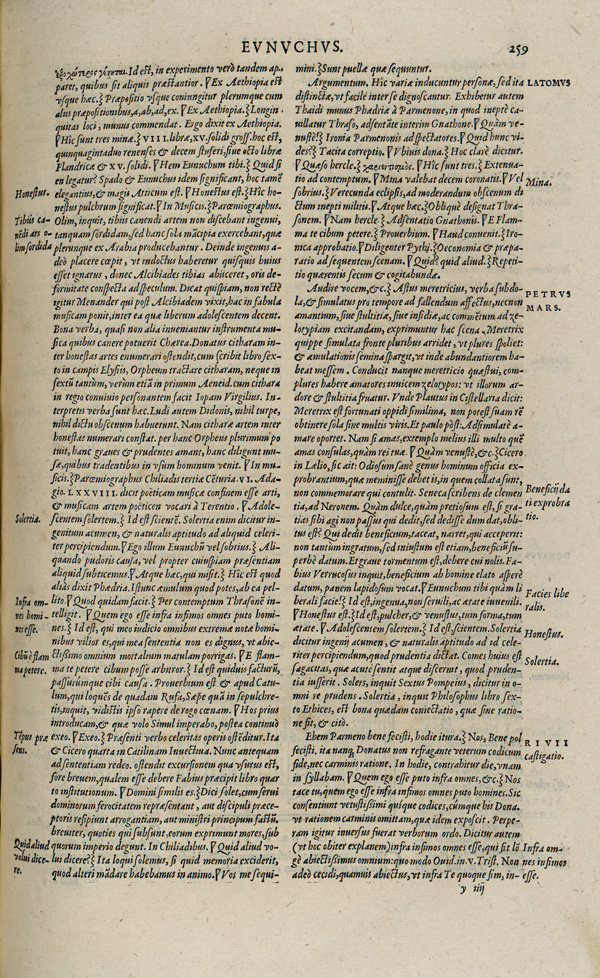 EVNVCHVS.
259
Id est, in experimento verò tandem ap-
paret, quibus sit aliquis præstantior. Ex Aethiopia est
vsque hæc. Præpositio vsque coniungitur plerumque cum
alijs præpositionibus, a, ab, ad, ex. Ex Aethiopia. Longin-
quitas loci, munus commendat. Ergo dixit ex Aethiopia.
Hic sunt tres minæ. VIII. libræ, XV. solidi gross. hoc est,
quinquaginta duo renenses & decem stuferi, siue octo libræ
Flandricæ & XV. solidi. Hem Eunuchum tibi. Quid si
en legatur? Spado & Eunuchus idem significant, hoc tamē
elegantius, & magis Atticum est. Honestus est. Hic ho-
nestus pulchrum significat. In Musicis. Parœmiographus.
Olim, inquit, tibijs canendi artem non discebant ingenui,
tanquam sordidam, sed hanc sola mācipia exercebant, quæ
plerunque ex Arabia producebantur. Deinde ingenuis a-
deò placere cœpit, vt indoctus haberetur quisquis huius
esset ignarus, donec Alcibiades tibias abijceret, oris de-
formitate conspecta ad speculum. Dicat quispiam, non rectè
igitur Menander qui post Alcibiadem vixit, hac in fabula
musicam ponit, inter ea quæ liberum adolescentem decent.
Bona verba, quasi non alia inueniantur instrumenta mu-
sica quibus canere potuerit Chærea. Donatus citharam in-
ter honestas artes enumerari ostendit, cum scribit libro sex-
to in campis Elysijs, Orpheum tractare citharam, neque in
sextū tantùm, verùm etiā in primum Aeneid. cum cithara
in regio conuiuio personantem facit Iopam Virgilius. In-
terpretis verba sunt hæc. Ludi autem Didonis, nihil turpe,
nihil dictu obscœnum habuerunt. Nam citharæ artem inter
honestas numerari constat. per hanc Orpheus plurimum po
tuit, hanc graues & prudentes amant, hanc diligunt mu-
sæ, quibus tradentibus in vsum hominum venit. In mu-
sicis. Parœmiographus Chiliadis tertiæ Cēturia. VI. Ada-
gio. LXXVIII. dicit poëticam musicæ confinem esse arti,
& musicam artem poëticen vocari à Terentio. Adole-
scentem solertem. Id est scientē. Solertia enim dicitur in-
genitum acumen, & naturalis aptitudo ad aliquid celeri-
ter percipiendum. Ego illum Eunuchū vel sobrius. Ali-
quando pudoris causa, vel propter cuiuspiam præsentiam
aliquid subticemus. Atque hæc, qui misit. Hic est quod
aliàs dixit Phædria. Istunc æmulum quod potes, ab ea pel-
lito. Quod quidam facit. Per contemptum Thrasonē in-
telligit. Quem ego esse infra infimos omnes puto homi-
nes. Id est, qui meo iudicio omnibus extrema nota homi-
nibus vilior es, qui mea sententia non es dignus, vt abie-
ctissimo omnium mortalium matulam porrigas. E flam-
ma te petere cibum posse arbitror. Id est quiduis facturū,
passurúmque cibi causa. Prouerbium est & apud Catul-
lum, qui loquēs de quadam Rufa, Sæpe quā in sepulchre-
tis, inquit, vidistis ipso rapere de rogo cœnam. Hos prius
introducam, & quæ volo Simul imperabo, postea continuò
exeo. Exeo. Præsenti verbo celeritas operis ostēditur. Ita
& Cicero quarta in Catilinam Inuectiua. Nunc antequam
ad sententiam redeo. ostendit excursionem qua vsurus est,
fore breuem, qualem esse debere Fabius præcipit libro quar
to institutionum. Domini similis es. Dici solet, cum serui
dominorum ferocitatem repræsentant, aut discipuli præce-
ptoris respiunt arrogantiam, aut ministri principum fastū.
breuiter, quoties qui subsunt, eorum exprimunt mores, sub
quorum imperio degunt. In Chiliadibus. Quid aliud vo-
lui dicere? Ita loqui solemus, si quid memoria exciderit,
quod alteri mādare habebamus in animo. Vos me sequi-
Honestus.
Tibijs ca-
nēdi ars o-
lim sordida
Solertia.
Infra om-
nes homi-
nes esse.
Cibū è flam
ma petere.
Tēpus præ
sens.
Quid aliud
volui dice-
re.
mini. Sunt puellæ quæ sequuntur.
Argumentum. Hic variæ inducuntur personæ, sed ita
distinctæ, vt facilè inter se dignoscantur. Exhibetur autem
Thaidi munus Phædriæ à Parmenone, in quod ineptè ca-
uillatur Thraso, adsentāte interim Gnathone. Quàm ve-
nustè! Ironia Parmenonis ad spectatores. Quid hunc vi-
des? Tacita correptio. Vbiuis dona. Hoc clarè dicitur.
Quæso hercle. Hic sunt tres. Extenua-
tio ad contemptum. Mina valebat decem coronatis. Vel
sobrius. Verecunda eclipsis, ad moderandum obscœnum di
ctum inepti militis. Atque hæc. Obliquè designat Thra-
sonem. Nam hercle. Adsentatio Gnathonis. E Flam-
ma te cibum petere. Prouerbium. Haud conuenit. Iro-
nica approbatio. Diligenter Pythi. Oeconomia & præpa-
ratio ad sequentem scenam. Quid? quid aliud. Repeti-
tio quærentis secum & cogitabundæ.
Audire vocem, &c. Astus meretricius, verba subdo-
la, & simulatus pro tempore ad fallendum affectus, necnon
amantium, siue stultitia, siue insidiæ, ac commētum ad ze-
lotypiam excitandam, exprimuntur hac scena. Meretrix
quippe simulata fronte pluribus arridet, vt plures spoliet:
& æmulationis semina spargit, vt inde abundantiorem ha-
beat messem. Conducit nanque meretricio quæstui, com-
plures habere amatores inuicem zelotypos: vt illorum ar-
dore & stultitia fruatur. Vnde Plautus in Cistellaria dicit:
Meretrix est fortunati oppidi similima, non potest suam rē
obtinere sola sine multis viris. Et paulo pòst: Adsimulatē a-
mare oportet. Nam si amas, extemplo melius illi multo quē
amas consulas, quàm rei tuæ. Quàm venustè, &c. Cicero
in Lælio, sic ait: Odiosum sanè genus hominum officia ex-
probrantium, quæ meminisse debet is, in quem collata sunt,
non commemorare qui contulit. Seneca scribens de clemen
tia, ad Neronem. Quàm dulce, quàm pretiosum est, si gra-
tias sibi agi non passus qui dedit, sed dedisse dum dat, obli-
tus est? Qui dedit beneficium, taceat, narret, qui acceperit:
non tantùm ingratum, sed iniustum est etiam, beneficiū su-
perbè datum. Et graue tormentum est, debere cui nolis. Fa-
bius Verrucosus inquit, beneficium ab homine elato asperè
datum, panem lapidosum vocat. Eunuchum tibi quàm li
berali facie! Id est, ingenua, non seruili, ac ætate iuuenili.
Honestus est. Id est, pulcher, & venustus, tum forma, tum
ætate. Adolescentem solertem. Id est, scientem. Solertia
dicitur ingenij acumen, & naturalis aptitudo ad id cele-
riter percipiendum, quod prudentia dictat. Comes huius est
sagacitas, quæ acutè sentit atque discernit, quod pruden-
tia iusserit. Solers, inquit Sextus Pompeius, dicitur in o-
mni re prudens. Solertia, inquit Philosophus libro sex-
to Ethices, est bona quædam coniectatio, quæ sine ratio-
ne fit, & citò.
Ehem Parmeno bene fecisti, hodie itura. Nos, Bene pol
fecisti, ita nanq; Donatus non refragante veterum codicum
fide, nec carminis ratione. In hodie, contrahitur die, vnam
in syllabam. Quem ego esse puto infra omnes, &c. Nos
tace tu, quem ego esse infra infimos omnes puto homines. Sic
consentiunt vetustissimi quique codices, cúmque his Dona.
vt rationem carminis omittam, quæ idem exposcit. Perpe-
ram igitur inuersus fuerat verborum ordo. Dicitur autem
(vt hoc obiter explanem) infra infimos omnes esse, qui sit lō
gè abiectissimus omnium: quo modo Ouid. in v. Trist. Non
adeò cecidi, quamuis abiectus, vt infra Te quoque sim, in-
y iiij
LATOMVS
Mina.
PETRVS
MARS.
Beneficij da
ti exprobra
tio.
Facies libe
ralis.
Honestus.
Solertia.
RIVII
castigatio.
Infra om-
nes infimos
esse.